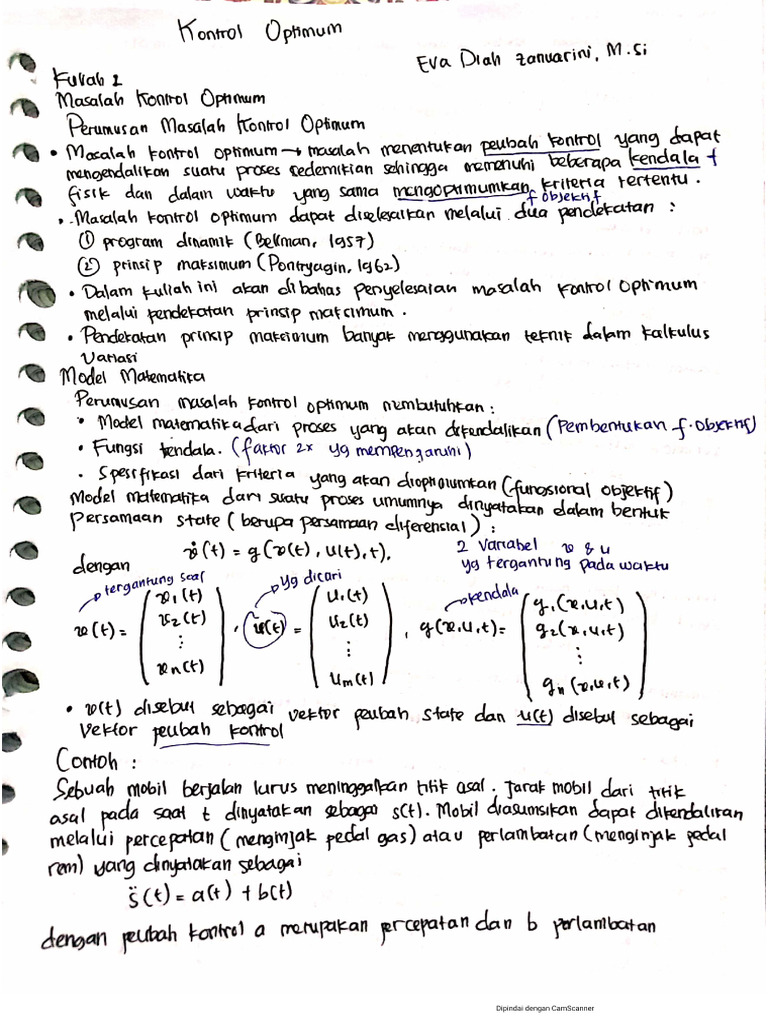 Kontrol Optimum
Eva Diah Zanuarini, M.Si
Kuliah 1
Masalah Kontrol Optimum
Perumusan Masalah Kontrol Optimum
• Masalah kontrol optimum → masalah menentukan peubah kontrol yang dapat
mengendalikan suatu proses sedemikian sehingga memenuhi beberapa kendala f
fisik dan dalam waktu yang sama mengoptimumkan kriteria tertentu.
f objektif
• Masalah kontrol optimum dapat diselesaikan melalui dua pendekatan :
① program dinamik (Bellman, 1957)
② prinsip maksimum (Pontryagin, 1962)
• Dalam kuliah ini akan dibahas penyelesaian masalah kontrol optimum
melalui pendekatan prinsip maksimum.
• Pendekatan prinsip maksimum banyak menggunakan teknik dalam kalkulus
variasi
Model Matematika
Perumusan masalah kontrol optimum membutuhkan :
• Model matematika dari proses yang akan dikendalikan (Pembentukan f. objektif)
• Fungsi kendala. (faktor 2x yg mempengaruhi)
• Spesifikasi dari kriteria yang akan dioptimumkan (fungsional objektif)
Model matematika dari suatu proses umumnya dinyatakan dalam bentuk
persamaan state (berupa persamaan diferensial) :
ẋ(t) = g(x(t), u(t), t),
2 variabel x & u
dengan
yg tergantung pada waktu
tergantung soal
yg dicari
kendala
x(t) = (x₁(t) x₂(t) ⋮ xₙ(t)), u(t) = (u₁(t) u₂(t) ⋮ uₘ(t)), g(x,u,t) = (g₁(x,u,t) g₂(x,u,t) ⋮ gₙ(x,u,t))
• x(t) disebut sebagai vektor peubah state dan u(t) disebut sebagai
vektor peubah kontrol
Contoh :
Sebuah mobil berjalan lurus meninggalkan titik asal. Jarak mobil dari titik
asal pada saat t dinyatakan sebagai s(t). Mobil diasumsikan dapat dikendalikan
melalui percepatan (menginjak pedal gas) atau perlambatan (menginjak pedal
rem) yang dinyatakan sebagai
s̈(t) = a(t) + b(t)
dengan peubah kontrol a merupakan percepatan dan b perlambatan
Dipindai dengan CamScanner